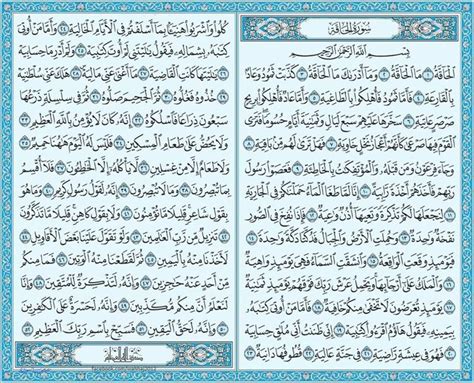 سُورَةُ الحَاقَّةِ
بِسْمِ اللَّهِ الرَّحْمَٰنِ الرَّحِيمِ
الْحَاقَّةُ ١ مَا الْحَاقَّةُ ٢ وَمَا أَدْرَاكَ مَا الْحَاقَّةُ ٣ كَذَّبَتْ ثَمُودُ وَعَادٌ
بِالْقَارِعَةِ ٤ فَأَمَّا ثَمُودُ فَأُهْلِكُوا بِالطَّاغِيَةِ ٥ وَأَمَّا عَادٌ فَأُهْلِكُوا بِرِيحٍ
صَرْصَرٍ عَاتِيَةٍ ٦ سَخَّرَهَا عَلَيْهِمْ سَبْعَ لَيَالٍ وَثَمَانِيَةَ أَيَّامٍ حُسُومًا فَتَرَى
الْقَوْمَ فِيهَا صَرْعَىٰ كَأَنَّهُمْ أَعْجَازُ نَخْلٍ خَاوِيَةٍ ٧ فَهَلْ تَرَىٰ لَهُم مِّن بَاقِيَةٍ ٨
وَجَاءَ فِرْعَوْنُ وَمَن قَبْلَهُ وَالْمُؤْتَفِكَاتُ بِالْخَاطِئَةِ ٩ فَعَصَوْا رَسُولَ
رَبِّهِمْ فَأَخَذَهُمْ أَخْذَةً رَّابِيَةً ١٠ إِنَّا لَمَّا طَغَا الْمَاءُ حَمَلْنَاكُمْ فِي الْجَارِيَةِ
١١ لِنَجْعَلَهَا لَكُمْ تَذْكِرَةً وَتَعِيَهَا أُذُنٌ وَاعِيَةٌ ١٢ فَإِذَا نُفِخَ فِي الصُّورِ
نَفْخَةٌ وَاحِدَةٌ ١٣ وَحُمِلَتِ الْأَرْضُ وَالْجِبَالُ فَدُكَّتَا دَكَّةً وَاحِدَةً ١٤
فَيَوْمَئِذٍ وَقَعَتِ الْوَاقِعَةُ ١٥ وَانشَقَّتِ السَّمَاءُ فَهِيَ يَوْمَئِذٍ وَاهِيَةٌ ١٦
وَالْمَلَكُ عَلَىٰ أَرْجَائِهَا وَيَحْمِلُ عَرْشَ رَبِّكَ فَوْقَهُمْ يَوْمَئِذٍ ثَمَانِيَةٌ ١٧
يَوْمَئِذٍ تُعْرَضُونَ لَا تَخْفَىٰ مِنكُمْ خَافِيَةٌ ١٨ فَأَمَّا مَنْ أُوتِيَ كِتَابَهُ
بِيَمِينِهِ فَيَقُولُ هَاؤُمُ اقْرَءُوا كِتَابِيَهْ ١٩ إِنِّي ظَنَنتُ أَنِّي مُلَاقٍ حِسَابِيَهْ
٢٠ فَهُوَ فِي عِيشَةٍ رَّاضِيَةٍ ٢١ فِي جَنَّةٍ عَالِيَةٍ ٢٢ قُطُوفُهَا دَانِيَةٌ ٢٣
كُلُوا وَاشْرَبُوا هَنِيئًا بِمَا أَسْلَفْتُمْ فِي الْأَيَّامِ الْخَالِيَةِ ٢٤ وَأَمَّا مَنْ أُوتِيَ
كِتَابَهُ بِشِمَالِهِ فَيَقُولُ يَا لَيْتَنِي لَمْ أُوتَ كِتَابِيَهْ ٢٥ وَلَمْ أَدْرِ مَا حِسَابِيَهْ
٢٦ يَا لَيْتَهَا كَانَتِ الْقَاضِيَةَ ٢٧ مَا أَغْنَىٰ عَنِّي مَالِيَهْ ٢٨ هَلَكَ عَنِّي سُلْطَانِيَهْ
٢٩ خُذُوهُ فَغُلُّوهُ ٣٠ ثُمَّ الْجَحِيمَ صَلُّوهُ ٣١ ثُمَّ فِي سِلْسِلَةٍ ذَرْعُهَا
سَبْعُونَ ذِرَاعًا فَاسْلُكُوهُ ٣٢ إِنَّهُ كَانَ لَا يُؤْمِنُ بِاللَّهِ الْعَظِيمِ ٣٣
وَلَا يَحُضُّ عَلَىٰ طَعَامِ الْمِسْكِينِ ٣٤ فَلَيْسَ لَهُ الْيَوْمَ هَاهُنَا حَمِيمٌ ٣٥
وَلَا طَعَامٌ إِلَّا مِنْ غِسْلِينٍ ٣٦ لَّا يَأْكُلُهُ إِلَّا الْخَاطِئُونَ ٣٧ فَلَا أُقْسِمُ
بِمَا تُبْصِرُونَ ٣٨ وَمَا لَا تُبْصِرُونَ ٣٩ إِنَّهُ لَقَوْلُ رَسُولٍ كَرِيمٍ ٤٠ وَمَا هُوَ
بِقَوْلِ شَاعِرٍ قَلِيلًا مَّا تُؤْمِنُونَ ٤١ وَلَا بِقَوْلِ كَاهِنٍ قَلِيلًا مَّا تَذَكَّرُونَ
٤٢ تَنزِيلٌ مِّن رَّبِّ الْعَالَمِينَ ٤٣ وَلَوْ تَقَوَّلَ عَلَيْنَا بَعْضَ الْأَقَاوِيلِ ٤٤
لَأَخَذْنَا مِنْهُ بِالْيَمِينِ ٤٥ ثُمَّ لَقَطَعْنَا مِنْهُ الْوَتِينَ ٤٦ فَمَا مِنكُم مِّنْ
أَحَدٍ عَنْهُ حَاجِزِينَ ٤٧ وَإِنَّهُ لَتَذْكِرَةٌ لِّلْمُتَّقِينَ ٤٨ وَإِنَّا
لَنَعْلَمُ أَنَّ مِنكُم مُّكَذِّبِينَ ٤٩ وَإِنَّهُ لَحَسْرَةٌ عَلَى الْكَافِرِينَ
٥٠ وَإِنَّهُ لَحَقُّ الْيَقِينِ ٥١ فَسَبِّحْ بِاسْمِ رَبِّكَ الْعَظِيمِ ٥٢